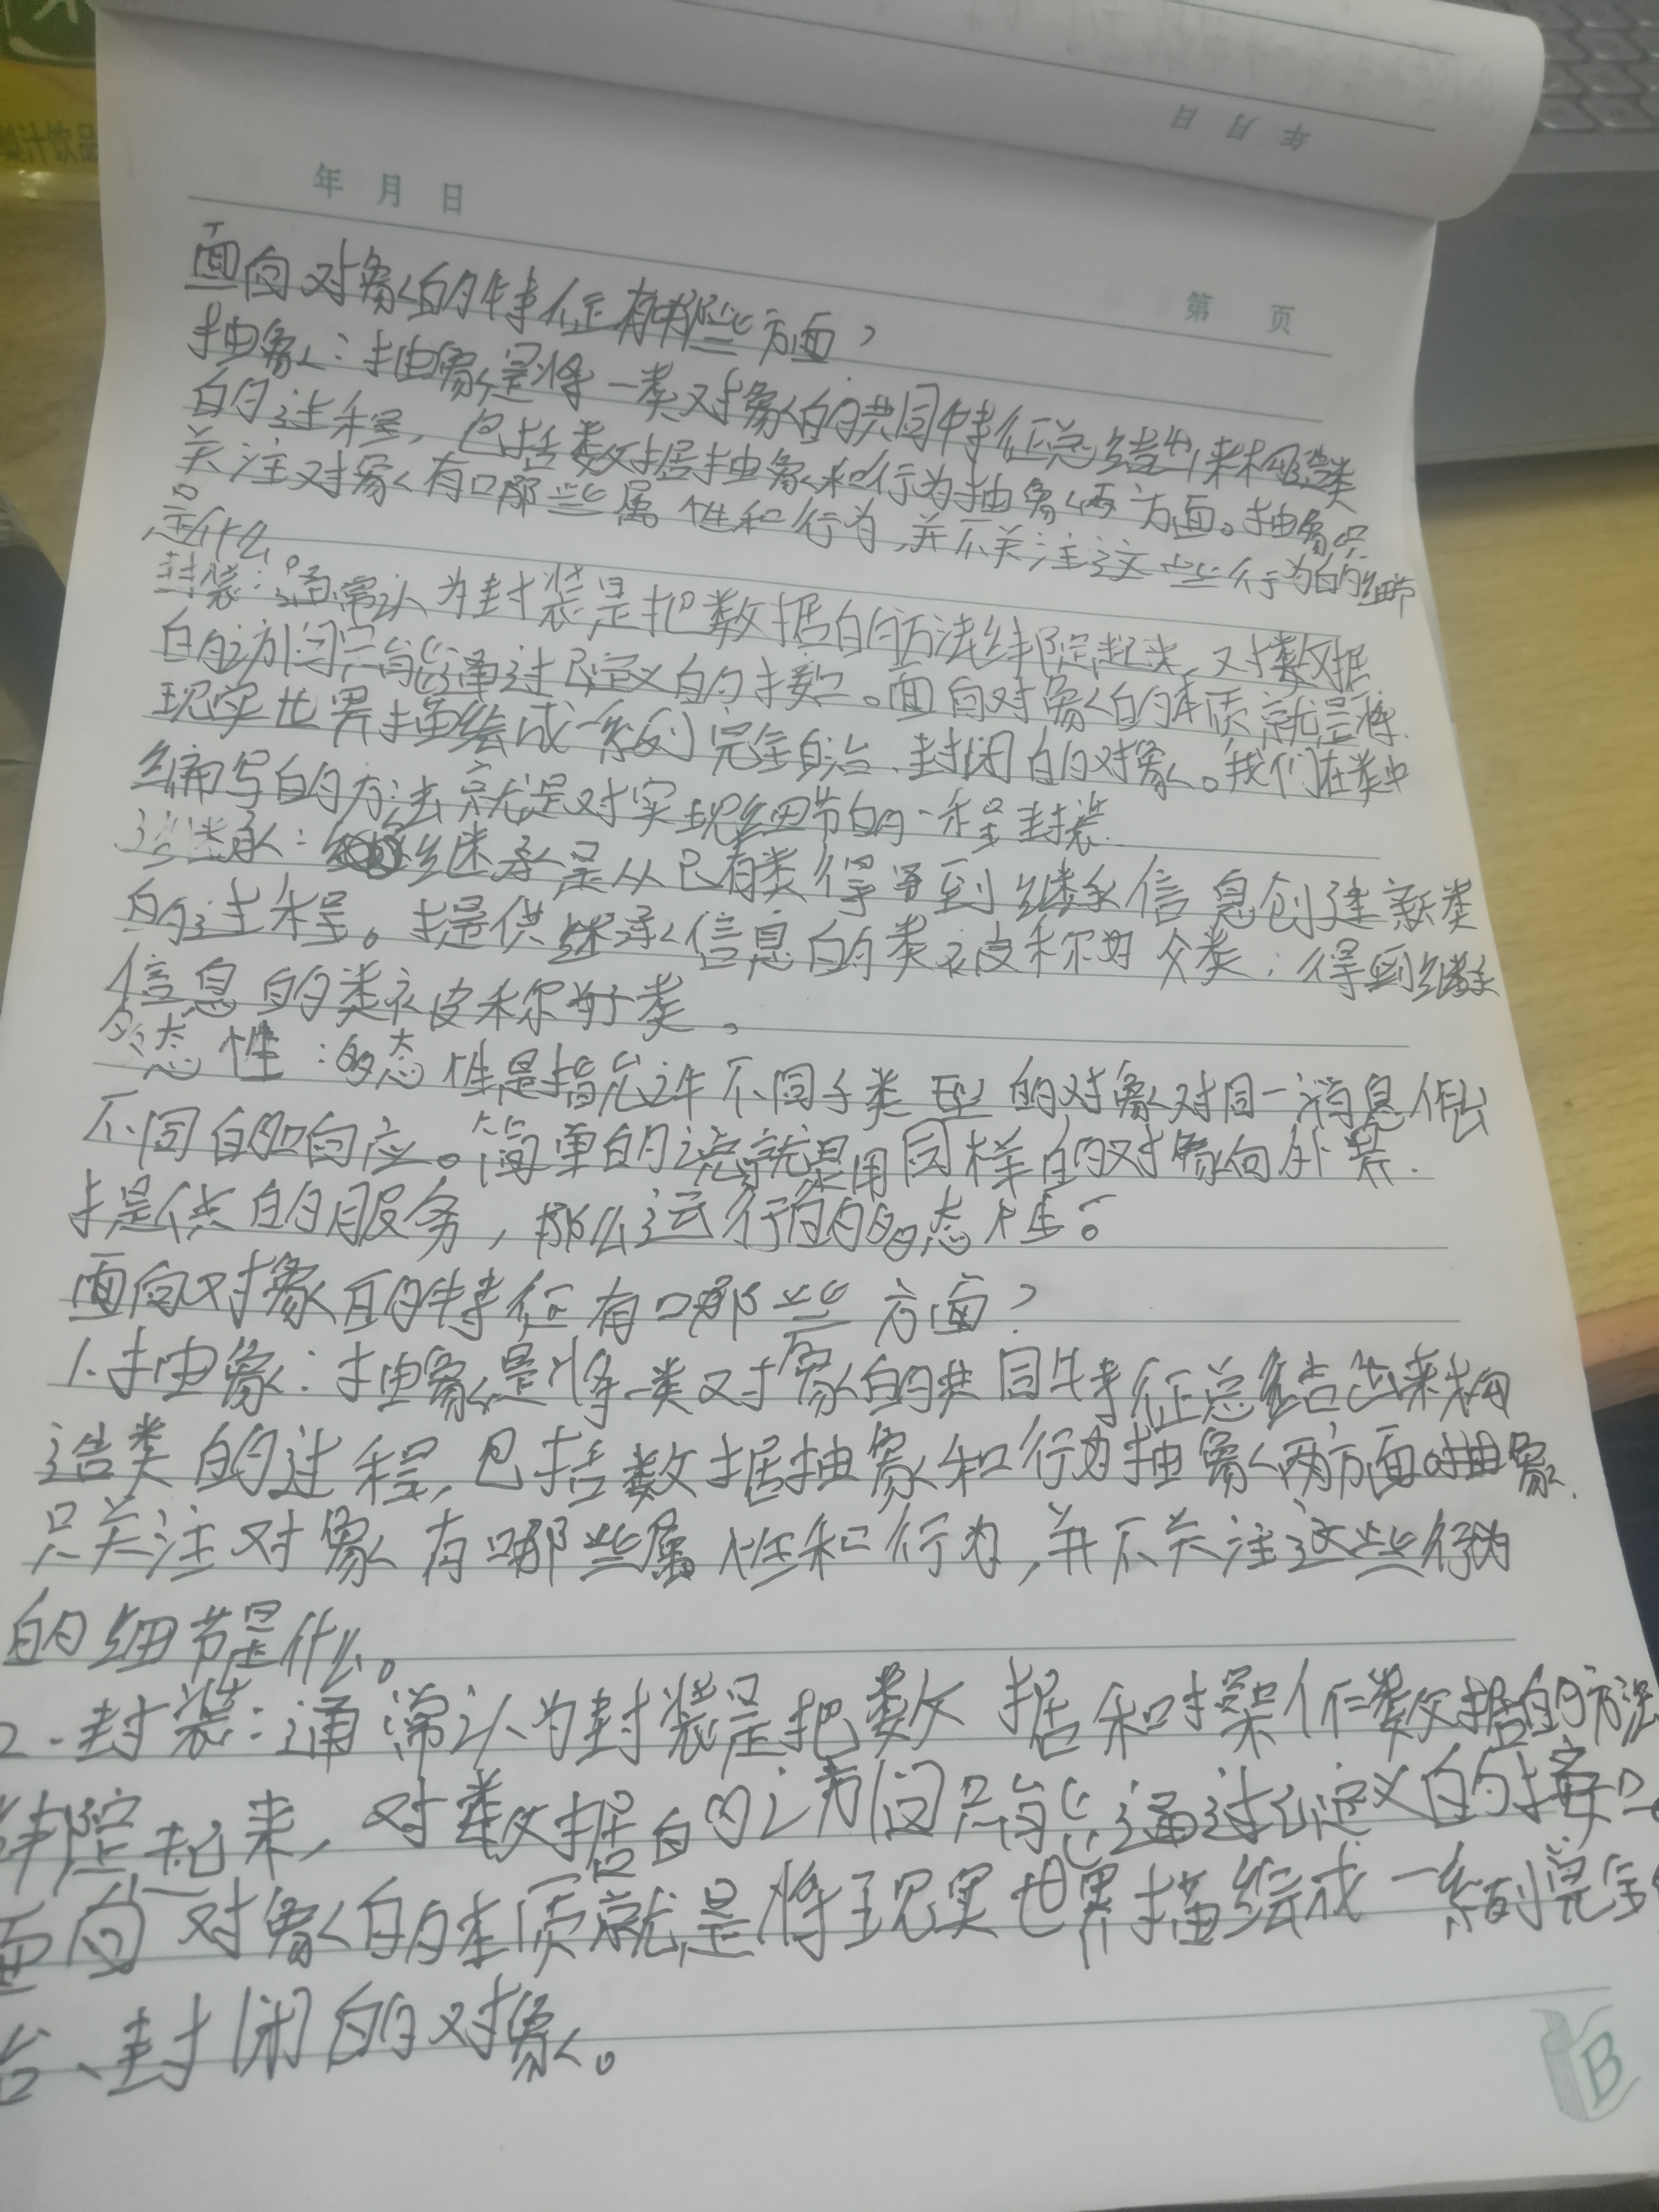 年 月 日
集汁饮品
年 月 日
第 页
面向对象的特征有哪些方面?
抽象:抽象是将一类对象的共同特征总结出来构造类
的过程,包括数据抽象和行为抽象两方面。抽象只
关注对象有哪些属性和行为,并不关注这些行为的细节
是什么。
封装:通常认为封装是把数据的方法绑定起来,对数据
的访问只能通过已定义的接口。面向对象的本质就是将
现实世界描绘成一系列完全自治、封闭的对象。我们在类中
编写的方法就是对实现细节的一种封装.
继承:继承是从已有类得到继承信息创建新类
的过程。提供继承信息的类被称为父类;得到继承
信息的类被称为子类。
多态性:多态性是指允许不同子类型的对象对同一消息作出
不同的响应。简单的说就是用同样的对象向外界
提供的服务,那么运行的多态性。
面向对象的特征有哪些方面?
1.抽象:抽象是将一类对象的共同特征总结出来构
造类的过程,包括数据抽象和行为抽象两方面。抽象
只关注对象有哪些属性和行为,并不关注这些行为
的细节是什么。
2.封装:通常认为封装是把数据和对操作数据的方法
绑定起来,对数据的访问只能通过已定义的接口。
面向对象的本质就是将现实世界描绘成一系列完全
治、封闭的对象。
B